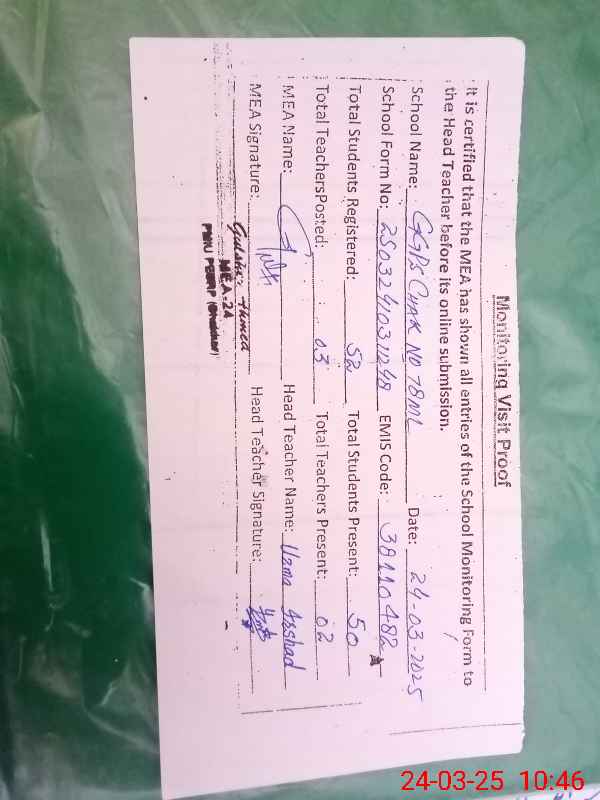 Monitoring Visit Proof
It is certified that the MEA has shown all entries of the School Monitoring Form to
the Head Teacher before its online submission.
School Name: GGPS CHAK NO 78ML Date: 24-03-2025
School Form No: 2503241031248 EMIS Code: 38110482
Total Students Registered: 52 Total Students Present: 50
Total TeachersPosted: 03 Total Teachers Present: 02
MEA Name: Head Teacher Name: Uzma Arshad
MEA Signature: Head Teacher Signature:
Gulsher Ahmed
MEA-24
24-03-25 10:46